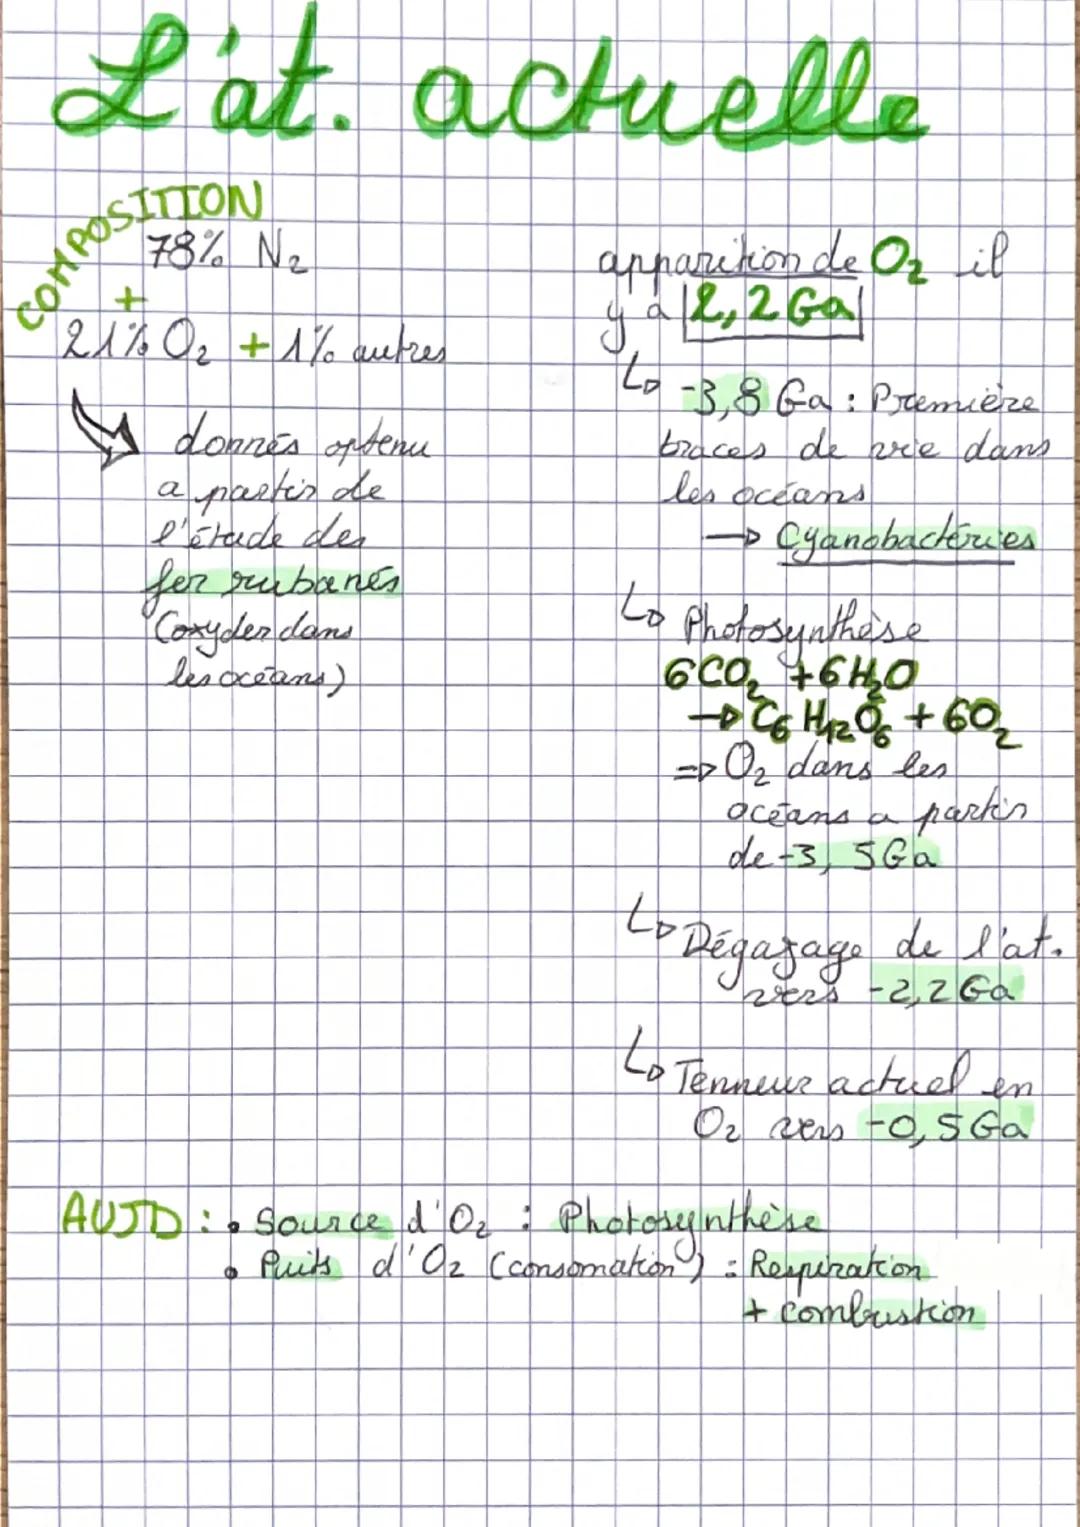 L'at. actuelle
COMPOSITION
78% N₂
+
21% O₂ + 1% autres
donnés optenu
a partir de
l'étude des
fer rubanés
(oxyder dans
les océans)
apparition de O₂ il
y a 2,2 Ga
↳ -3,8 Ga : Première
traces de vie dans
les océans
→ Cyanobactéries
↳ Photosynthèse
6CO₂ + 6H₂O
→ C₆H₁₂O₆ + 6O₂
⇒ O₂ dans les
océans a partir
de -3, 5Ga
↳ Dégazage de l'at.
vers -2,2 Ga
↳ Tenneur actuel en
O₂ vers -0,5 Ga
AUJD : • Source d'O₂ : Photosynthèse
• Puits d'O₂ (consomation) = Respiration
+ combustion